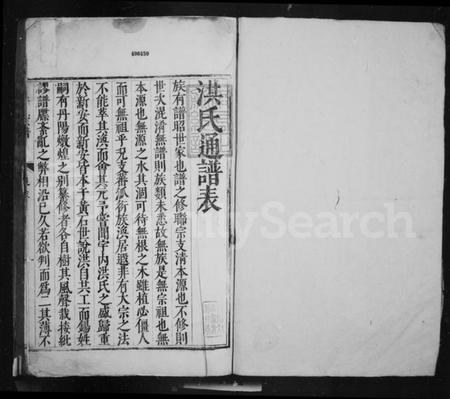 496450
洪氏通譜表
族有譜昭世家也譜之修聯宗支清本源也不修則
世次混淆無譜則族類未悉故無族是無宗祖也無
本源也無源之水其涸可待無根之木雖植必僵人
而可無祖乎况支蕃派衍族渙居遐非有大宗之法
不能萃其渙而會其元嘗聞宇内洪氏之盛歸重
於新安而新安皆本于黄石世說洪自共工而錫姓
嗣有丹陽燉煌之别纂修者各自樹其風聲裁接紕
謬譜牒紊亂之弊相沿已久若欲判而為二其薄不
FamilySearch